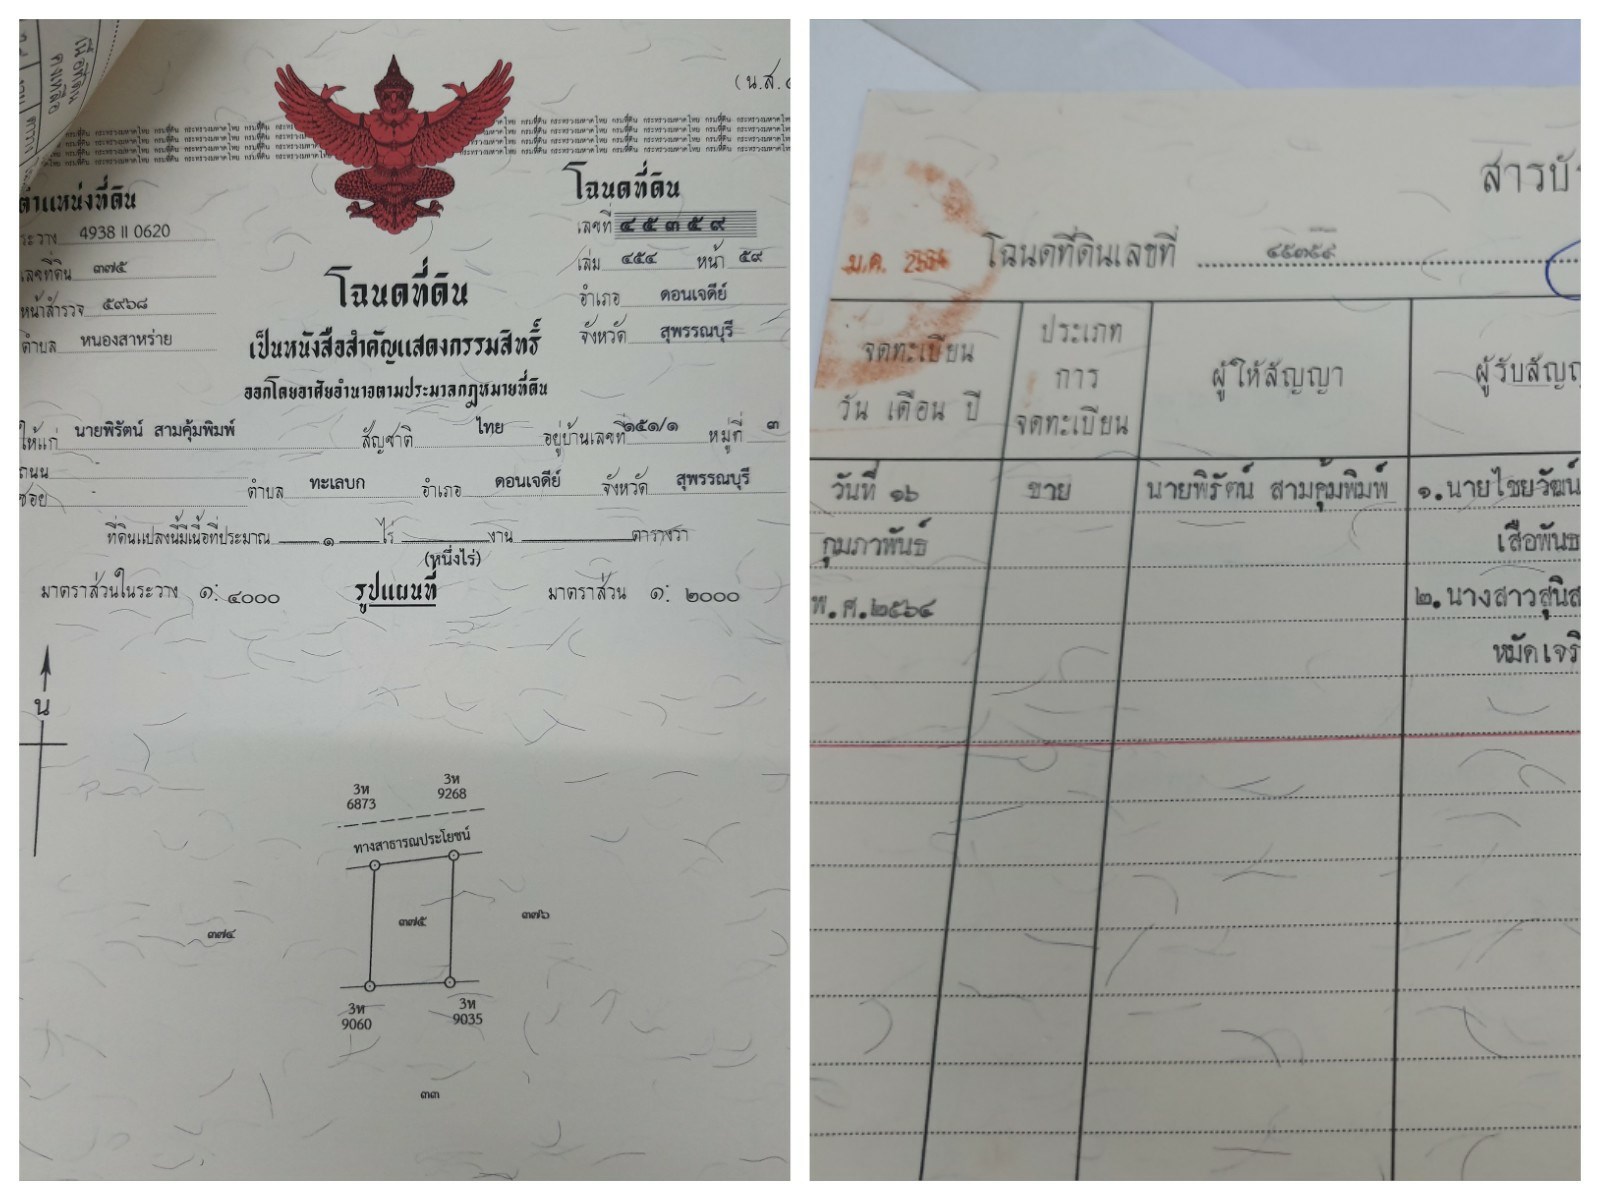 (น.ส.๔
กรมที่ดิน กระทรวงมหาดไทย กรมที่ดิน กระทรวงมหาดไทย กรมที่ดิน
ตำแหน่งที่ดิน
ระวาง 4938 II 0620
เลขที่ดิน ๓๗๕
หน้าสำรวจ ๕๙๖๘
ตำบล หนองสาหร่าย
โฉนดที่ดิน
เลขที่ ๔๕๓๕๙
เล่ม ๔๕๔ หน้า ๕๙
อำเภอ ดอนเจดีย์
จังหวัด สุพรรณบุรี
โฉนดที่ดิน
เป็นหนังสือสำคัญแสดงกรรมสิทธิ์
ออกโดยอาศัยอำนาจตามประมวลกฎหมายที่ดิน
ให้แก่ นายพิรัตน์ สามคุ้มพิมพ์ สัญชาติ ไทย อยู่บ้านเลขที่ ๑๕๑/๑ หมู่ที่ ๓
ถนน
ซอย ตำบล ทะเลบก อำเภอ ดอนเจดีย์ จังหวัด สุพรรณบุรี
ที่ดินแปลงนี้มีเนื้อที่ประมาณ ๑ ไร่ งาน ตารางวา
(หนึ่งไร่)
มาตราส่วนในระวาง ๑: ๔๐๐๐ รูปแผนที่ มาตราส่วน ๑: ๒๐๐๐
น
3ห 3ห
6873 9268
ทางสาธารณประโยชน์
๓๗๔ ๓๗๕ ๓๗๖
3ห 3ห
9060 9035
๓๓
สารบั
ม.ค.
โฉนดที่ดินเลขที่ ๔๕๓๕๙
จดทะเบียน
วัน เดือน ปี
ประเภท
การ
จดทะเบียน
ผู้ให้สัญญา
ผู้รับสัญญ
วันที่ ๑๖ ขาย นายพิรัตน์ สามคุ้มพิมพ์ ๑. นายไชยวัฒน์
กุมภาพันธ์ เสือพันธ
พ.ศ.๒๕๖๔ ๒. นางสาวสุนิส
หมัดเจริ